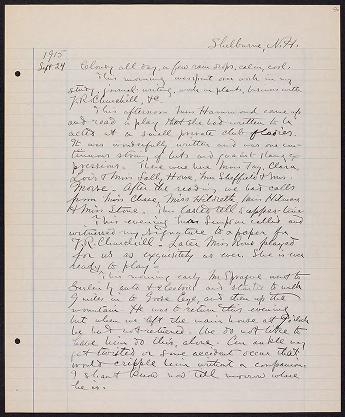 Shelburne, N.H.
1915
Sept 24 Cloudy all day, a few rain drops, calm, cool.
This morning was spent one with in my
study, journal writing, work on plants, business with
T.R. Churchill, &c.
This afternoon Miss Hammond came up
and read a play that she had written to be
acted at a small private club of ladies.
It was wonderfully written and was one con-
tinuous string of hits and quaint slang ex-
pressions. There were here Miss Fay, Clara,
Lois & Miss Sally, Howe, Mrs Sheffield & Miss
Morse. After the reading we had calls
from Miss Chase, Miss Hildreth, Miss
& Miss Stone. This lasted till supper-time
This evening called and
witnessed my signature to a paper for
T.R. Churchill. Later Miss played
for us as exquisitely as ever. She is ever
ready to play.
This morning early Mr Sprague went to
by auto & and started to walk
9 miles to Goose Eye, and then up the
mountain. He was to return this evening
but when we left the main house at 9 o'clock
he had not returned. We do not like to
have him do this, alone. An ankle may
get twisted or some accident occur that
would cripple him without a companion.
I shan't know now till morrow where
he is.